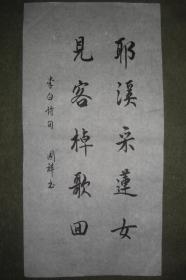 耶溪采蓮女
見客棹歌回
李白诗句 周祥书